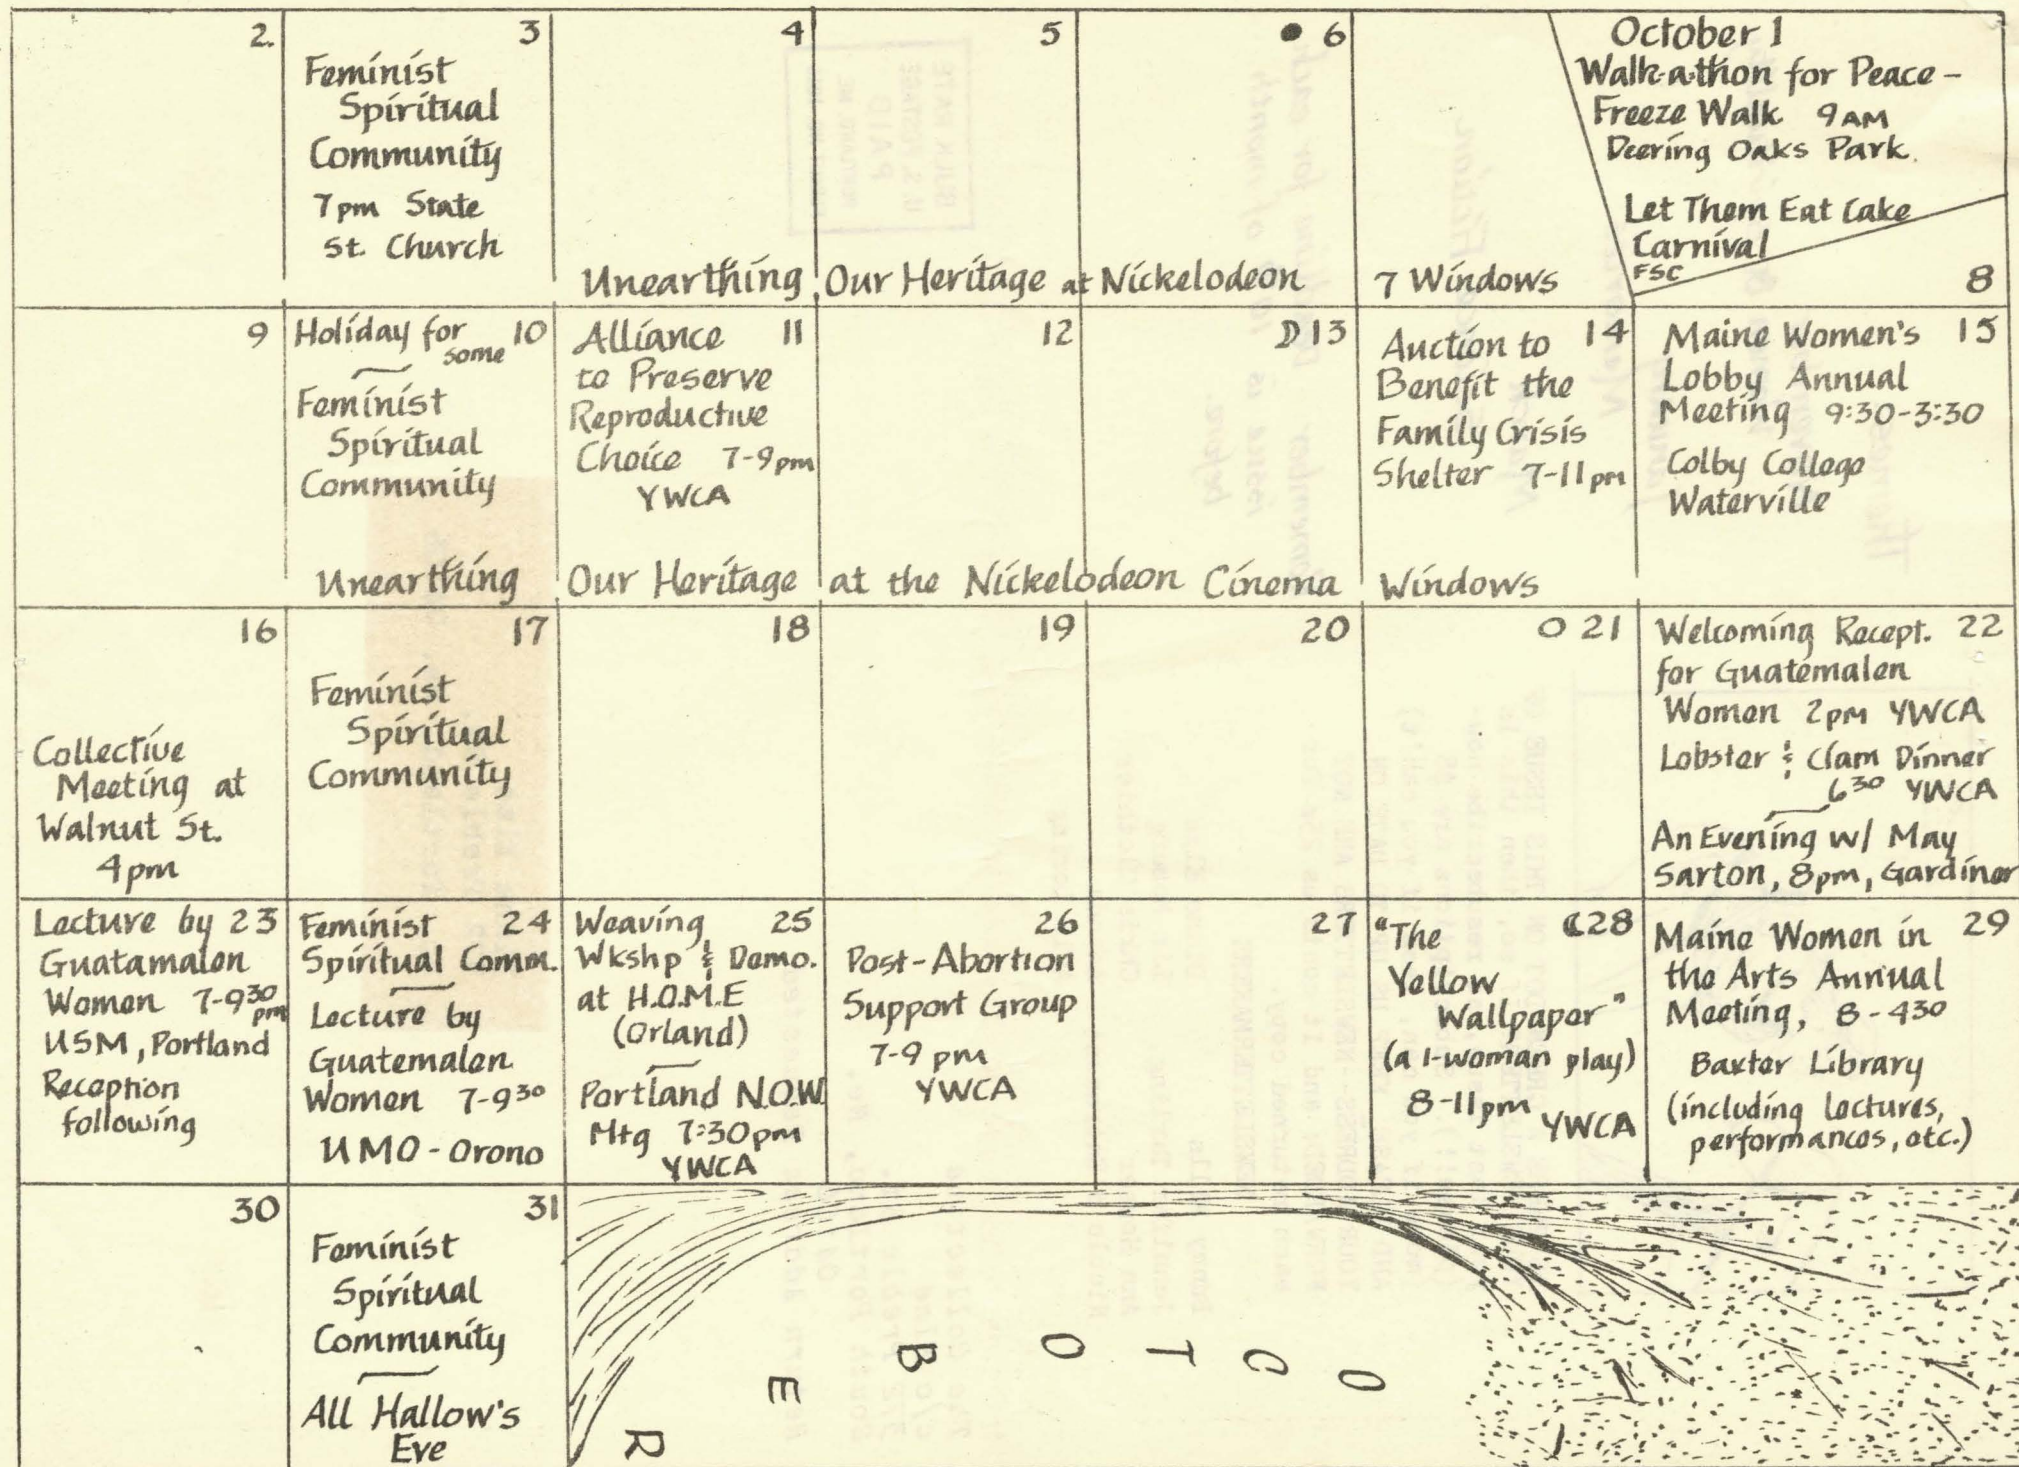 2.
3
Feminist
Spiritual
Community
7pm State
St. Church
4
5
6
October 1
Walk-a-thon for Peace -
Freeze Walk 9AM
Deering Oaks Park.
Let Them Eat Cake
Carnival
FSC
8
Unearthing Our Heritage at Nickelodeon 7 Windows
9
Holiday for 10
some
Feminist
Spiritual
Community
Alliance 11
to Preserve
Reproductive
Choice 7-9pm
YWCA
12
13
Auction to 14
Benefit the
Family Crisis
Shelter 7-11pm
Maine Women's 15
Lobby Annual
Meeting 9:30-3:30
Colby College
Waterville
Unearthing Our Heritage at the Nickelodeon Cinema Windows
16
Collective
Meeting at
Walnut St.
4pm
17
Feminist
Spiritual
Community
18
19
20
21
Welcoming Recept. 22
for Guatemalen
Women 2pm YWCA
Lobster & Clam Dinner
630 YWCA
An Evening w/ May
Sarton, 8pm, Gardiner
Lecture by 23
Guatamalen
Women 7-930
pm
USM, Portland
Reception
following
Feminist 24
Spiritual Comm.
Lecture by
Guatemalen
Women 7-930
UMO - Orono
Weaving 25
Wkshp & Demo.
at H.O.M.E
(Orland)
Portland N.O.W.
Mtg 7:30pm
YWCA
26
Post-Abortion
Support Group
7-9 pm
YWCA
27
"The 28
Yellow
Wallpaper"
(a 1-woman play)
8-11pm
YWCA
Maine Women in 29
the Arts Annual
Meeting, 8-430
Baxter Library
(including lectures,
performances, etc.)
30
31
Feminist
Spiritual
Community
All Hallow's
Eve
OCTOBER